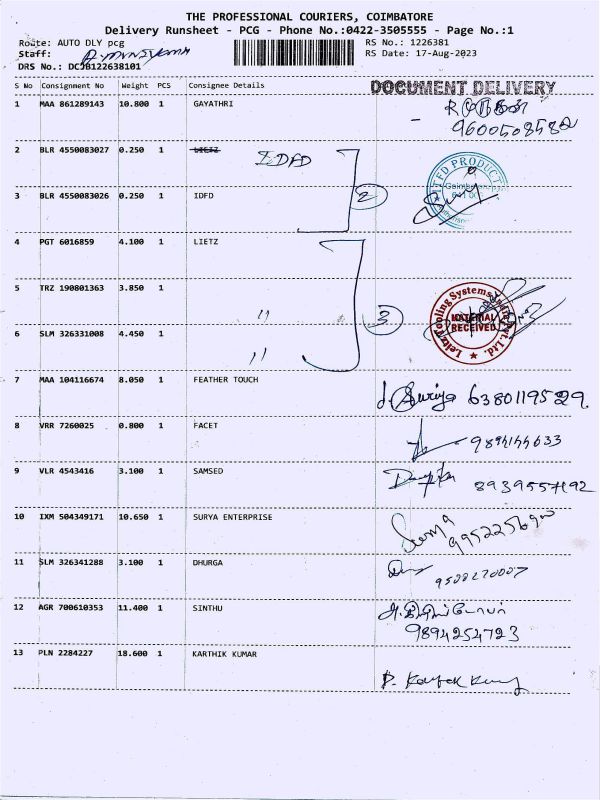 THE PROFESSIONAL COURIERS, COIMBATORE
Delivery Runsheet - PCG - Phone No.:0422-3505555 - Page No.:1
Route: AUTO DLY pcg RS No.: 1226381
Staff: RS Date: 17-Aug-2023
DRS No.: DCJB122638101
S No Consignment No Weight PCS Consignee Details DOCUMENT DELIVERY
1 MAA 861289143 10.800 1 GAYATHRI
9600508582
2 BLR 4550083027 0.250 1 LIETZ IDFD
3 BLR 4550083026 0.250 1 IDFD 2
4 PGT 6016859 4.100 1 LIETZ
5 TRZ 190801363 3.850 1 "
3
MATERIAL RECEIVED
6 SLM 326331008 4.450 1 "
7 MAA 104116674 8.050 1 FEATHER TOUCH Suriya 6380119529
8 VRR 7260025 0.800 1 FACET
9 VLR 4543416 3.100 1 SAMSED 8939557192
10 IXM 504349171 10.650 1 SURYA ENTERPRISE
11 SLM 326341288 3.100 1 DHURGA
12 AGR 700610353 11.400 1 SINTHU
9894254723
13 PLN 2284227 18.600 1 KARTHIK KUMAR